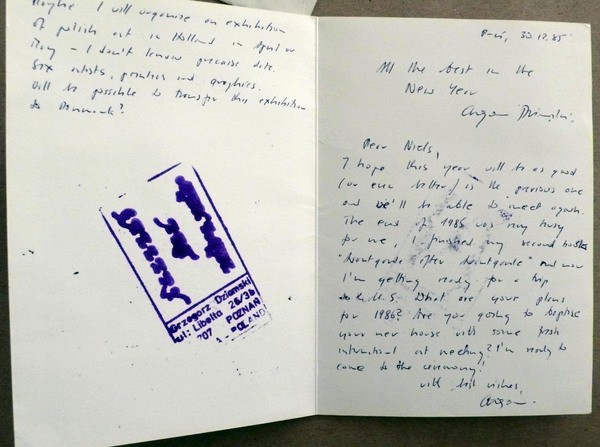 Maybe I will organize an exhibition
of polish art in Holland in April or
May – I don't know precise date.
Six artists, and graphics.
Will be possible to transfer this exhibition
to Denmark?
Grzegorz Dziamski
ul: Libelta 26/36
707 POZNAŃ
- POLAND
P-ń, 30.12.85
All the best in the
New Year
Dear Niels,
I hope this year will be as good
(or even better) as the previous one
and we'll be able to meet again.
The end of 1985 was very busy
for me, I finished my second book
"Avantgarde after Avantgarde" and now
I'm getting ready for a trip
to U.S. What are your plans
for 1986? Are you going to baptise
your new house with some fresh
international art meeting? I'm ready to
come to the ceremony!
with best wishes,